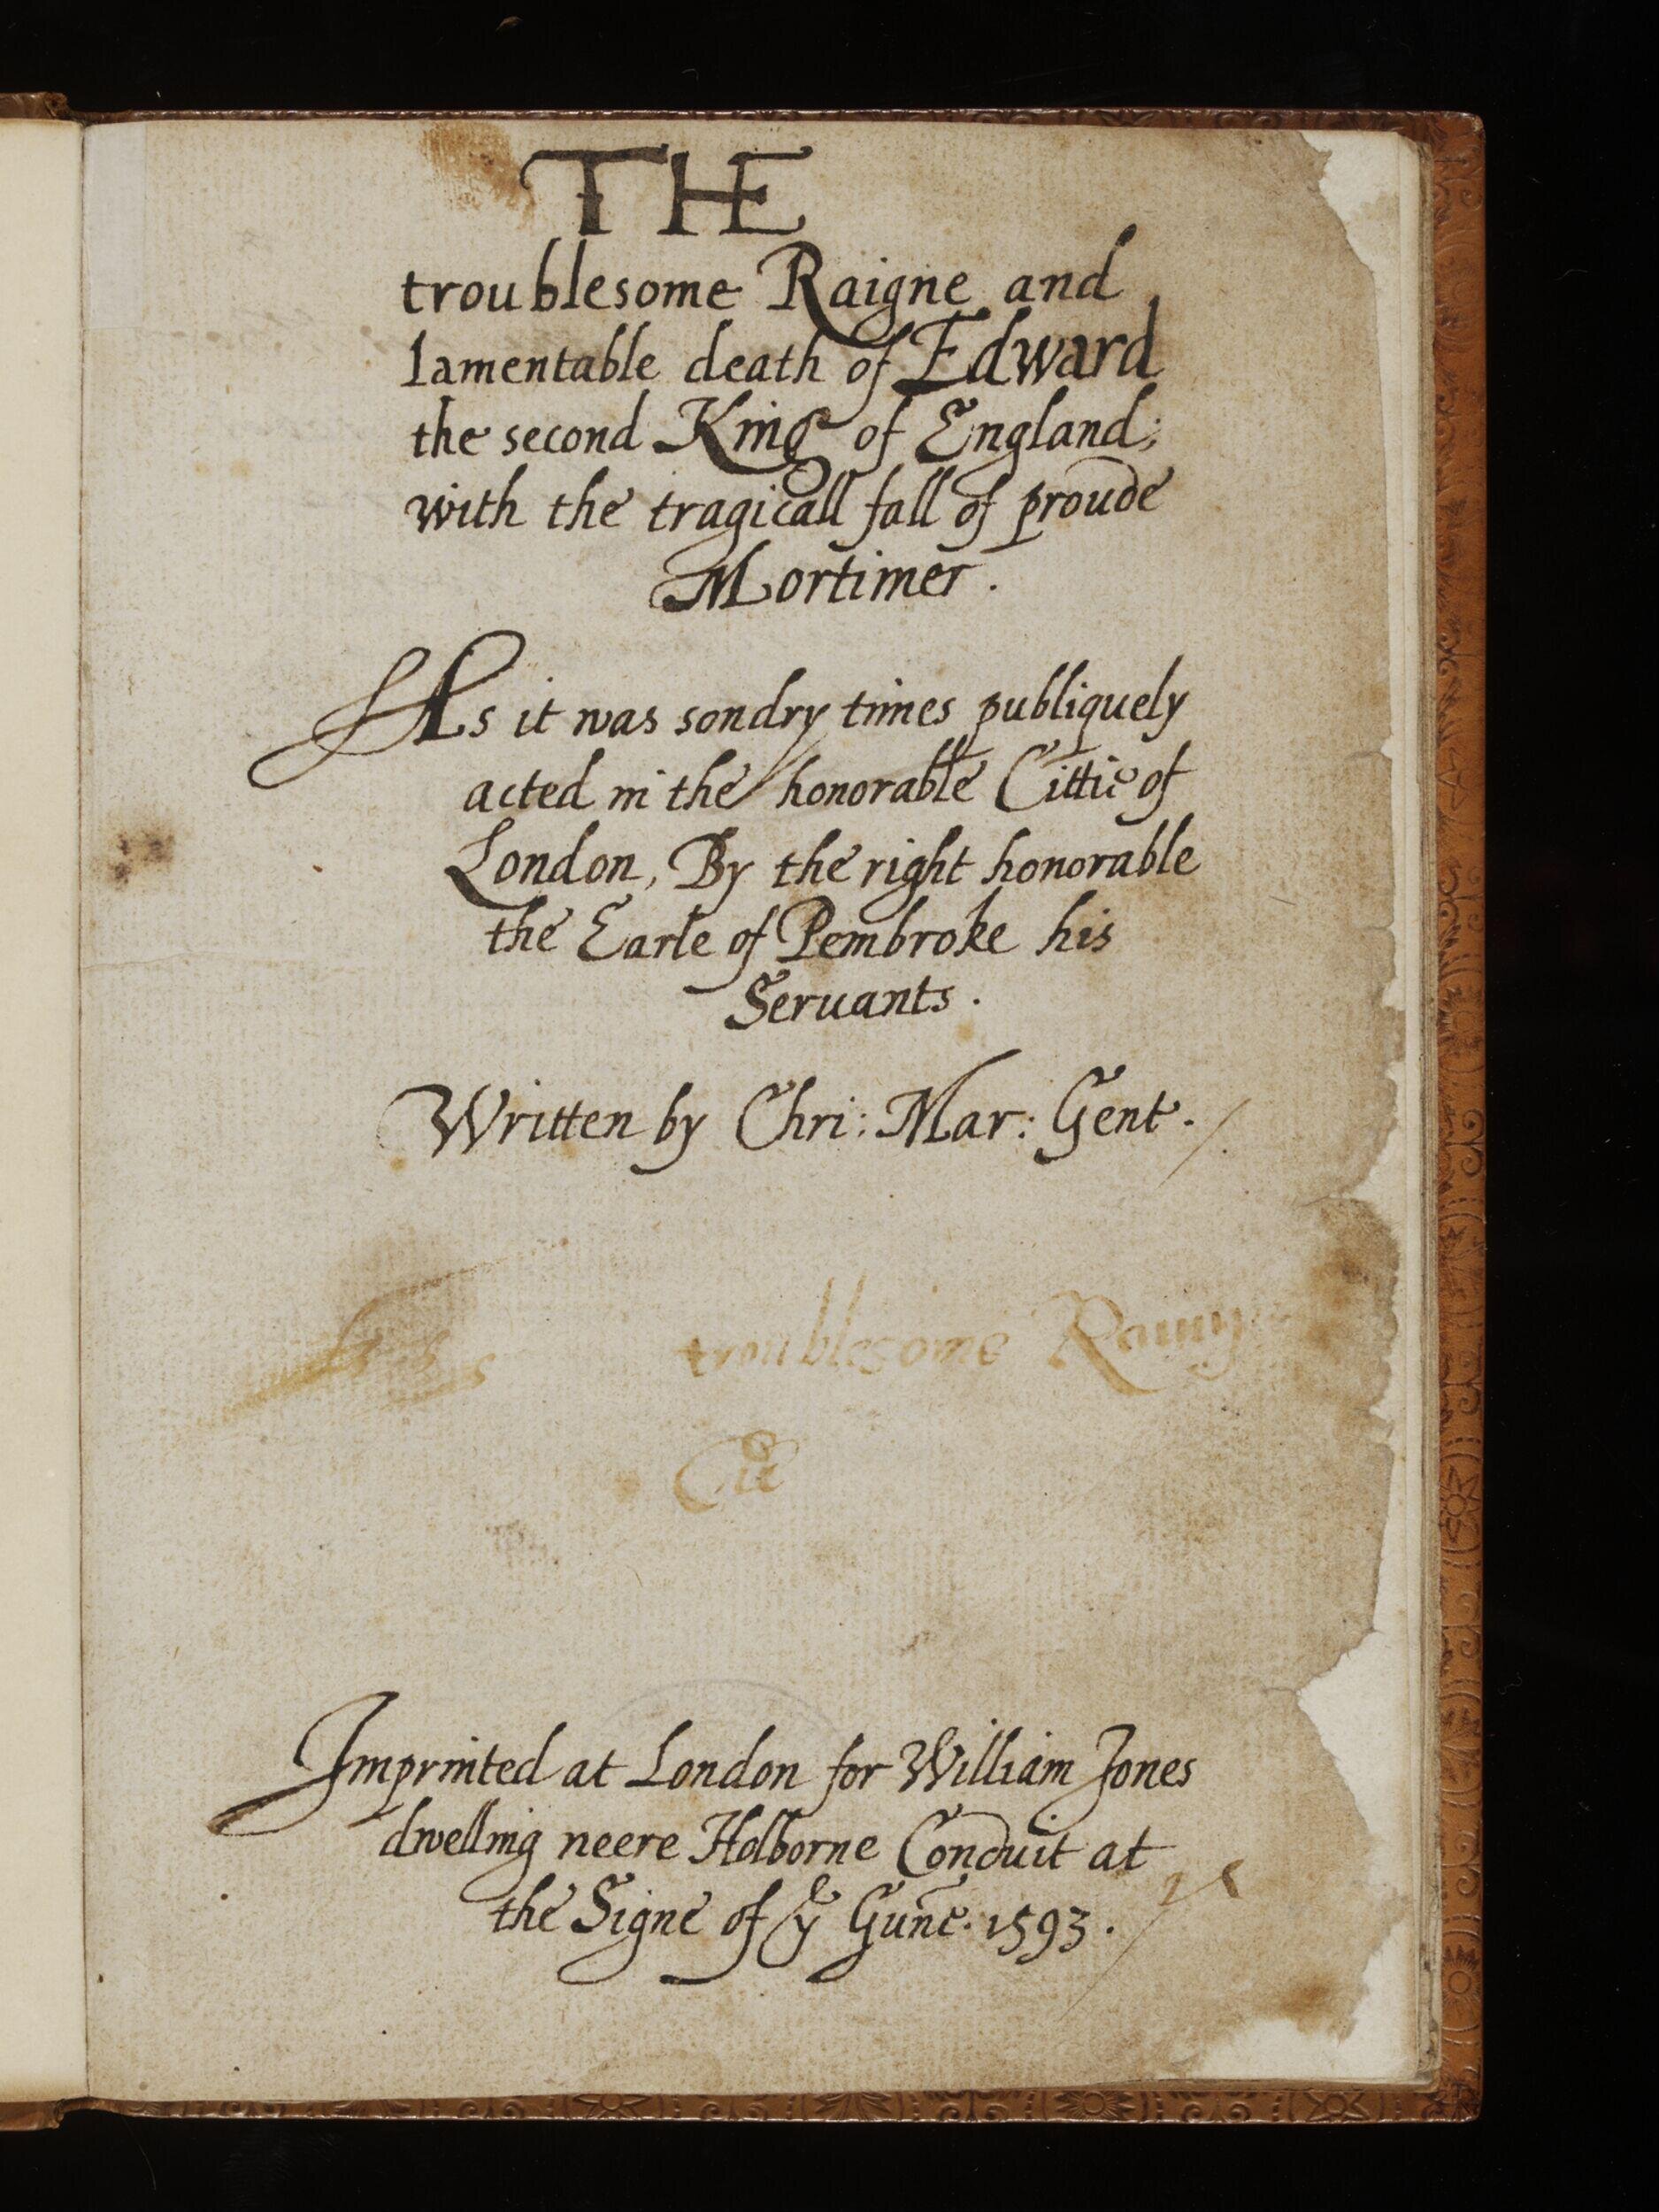 THE
troublesome Raigne and
lamentable death of Edward
the second King of England;
with the tragicall fall of proude
Mortimer.
As it was sondry times publiquely
acted in the honorable Cittie of
London, By the right honorable
the Earle of Pembroke his
Seruants.
Written by Chri: Mar: Gent.
troublesome
Imprinted at London for William Jones
dwelling neere Holborne Conduit at
the Signe of yᵉ Gunē. 1593.